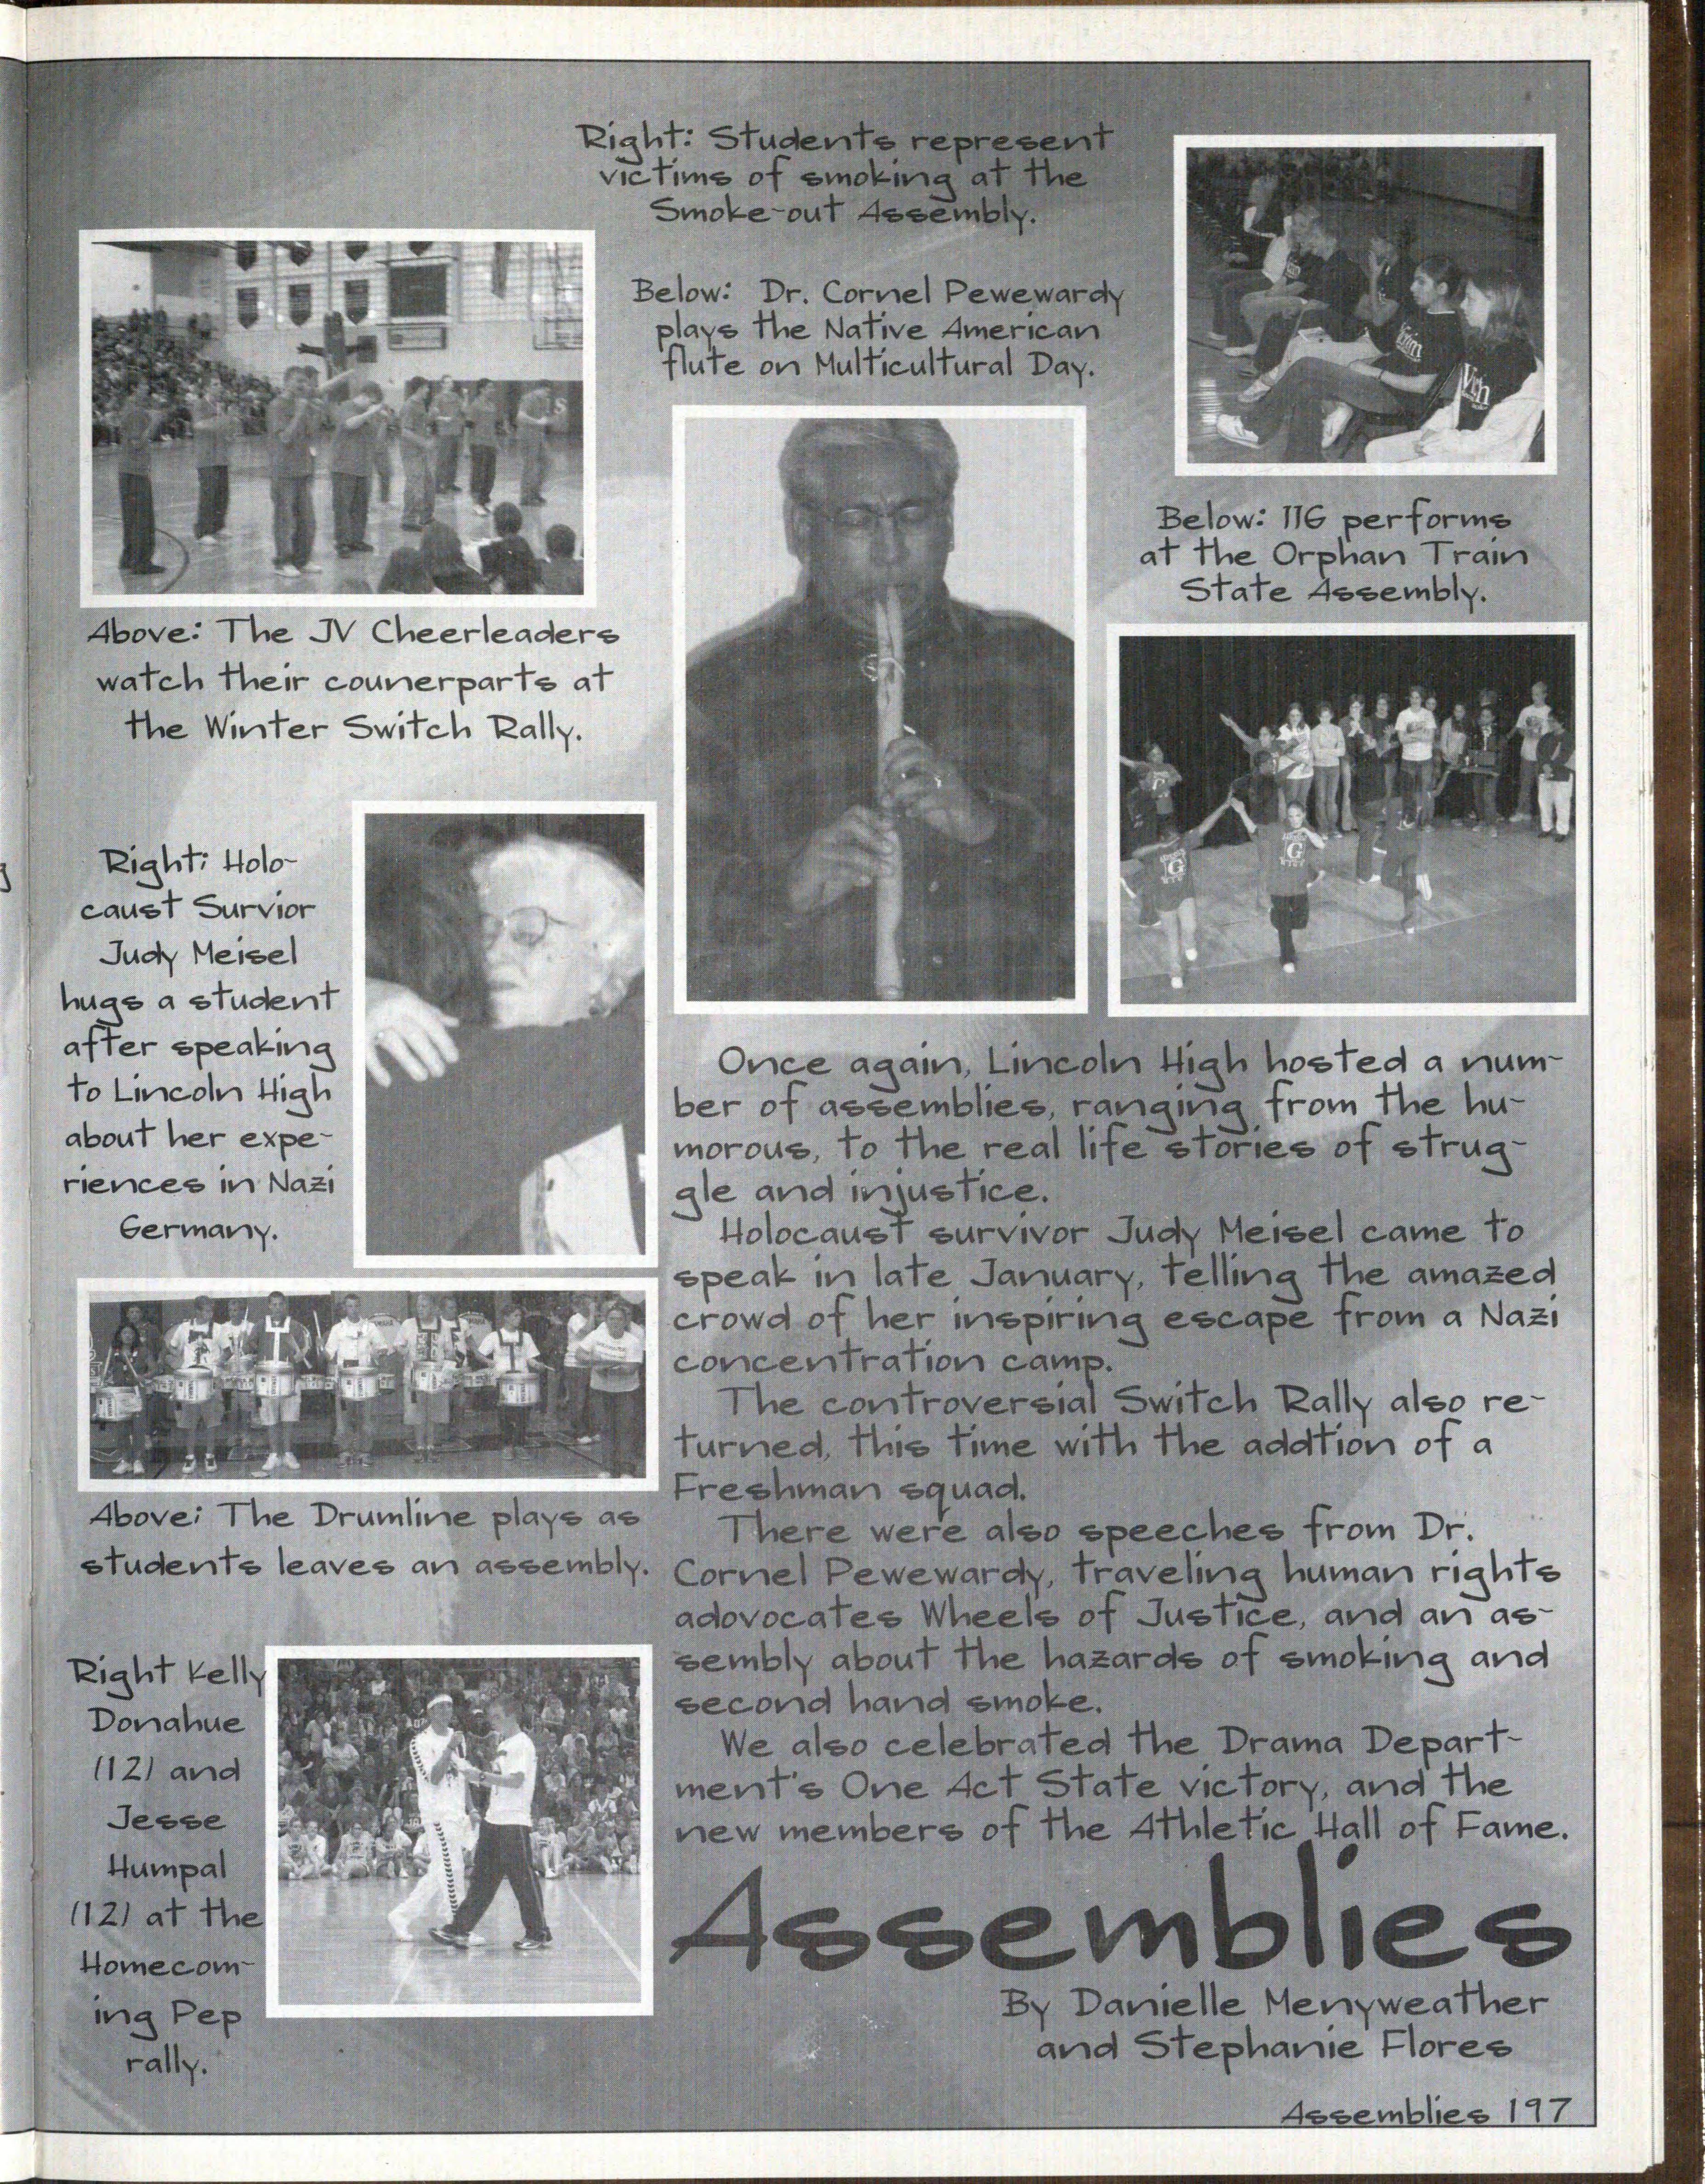 Right: Students represent
victims of smoking at the
Smoke-out Assembly.
Below: Dr. Cornel Pewewardy
plays the Native American
flute on Multicultural Day.
Below: IIG performs
at the Orphan Train
State Assembly.
Above: The JV Cheerleaders
watch their counerparts at
the Winter Switch Rally.
Right: Holo-
caust Survior
Judy Meisel
hugs a student
after speaking
to Lincoln High
about her expe-
riences in Nazi
Germany.
Above: The Drumline plays as
students leaves an assembly.
Right Kelly
Donahue
(12) and
Jesse
Humpal
(12) at the
Homecom-
ing Pep
rally.
Once again, Lincoln High hosted a num-
ber of assemblies, ranging from the hu-
morous, to the real life stories of strug-
gle and injustice.
Holocaust survivor Judy Meisel came to
speak in late January, telling the amazed
crowd of her inspiring escape from a Nazi
concentration camp.
The controversial Switch Rally also re-
turned, this time with the addtion of a
Freshman squad.
There were also speeches from Dr.
Cornel Pewewardy, traveling human rights
adovocates Wheels of Justice, and an as-
sembly about the hazards of smoking and
second hand smoke.
We also celebrated the Drama Depart-
ment's One Act State victory, and the
new members of the Athletic Hall of Fame.
Assemblies
By Danielle Menyweather
and Stephanie Flores
Assemblies 197